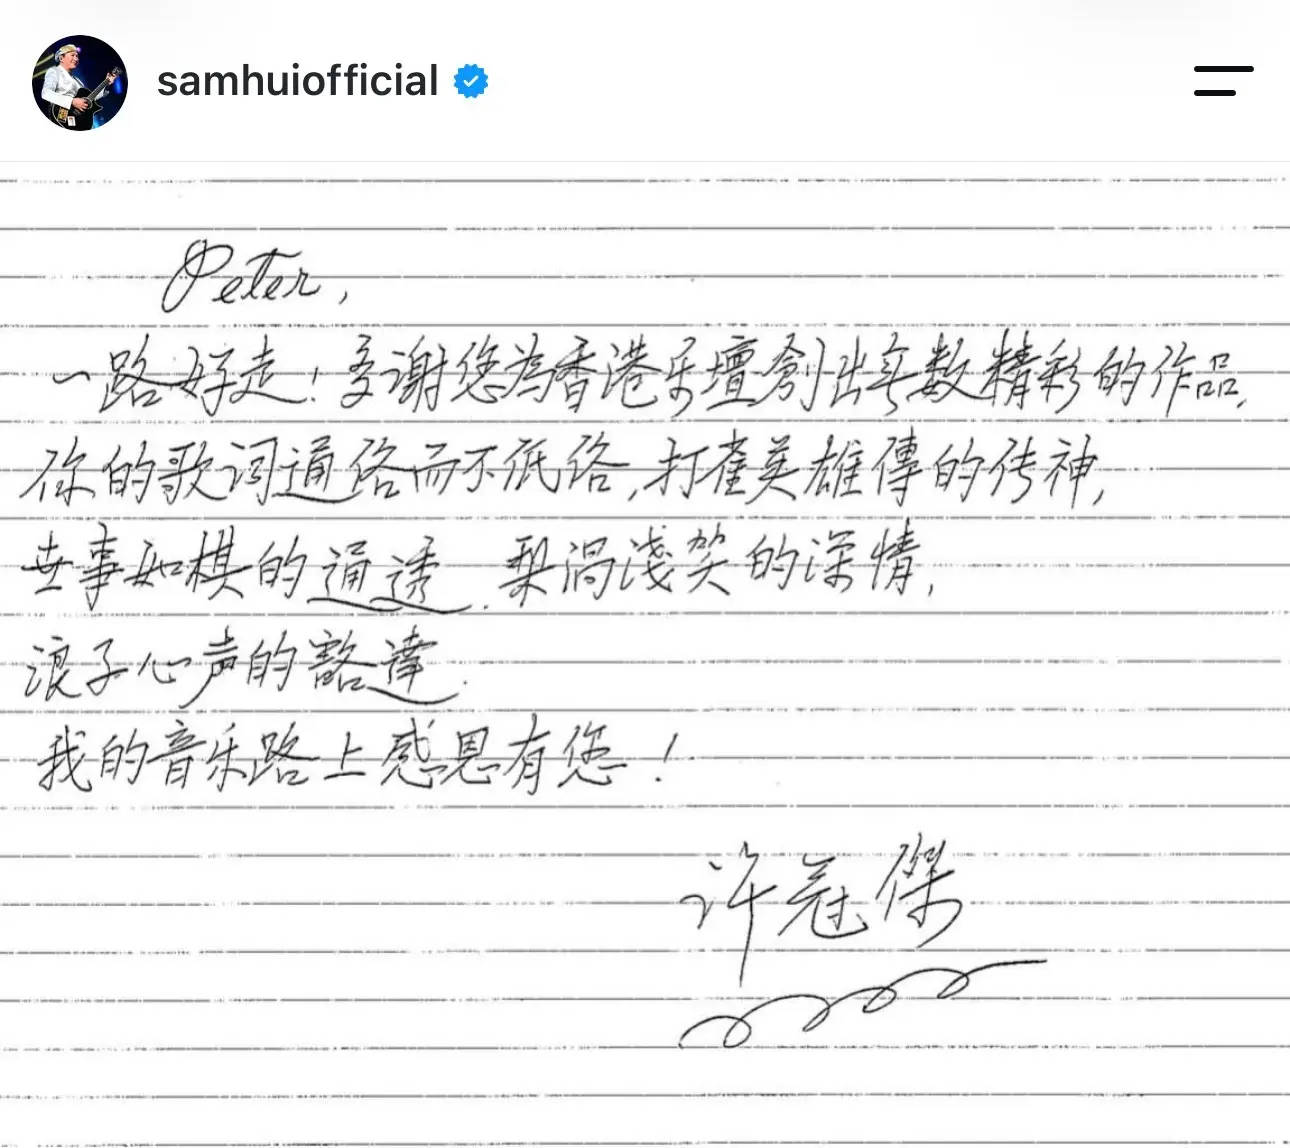 samhuiofficial
Peter,
一路好走！多谢您為香港乐壇創出無数精彩的作品,
你的歌词通俗而不低俗,打雀英雄傳的传神,
世事如棋的通透.梨涡淺笑的深情,
浪子心声的豁達.
我的音乐路上感恩有您！
许冠傑